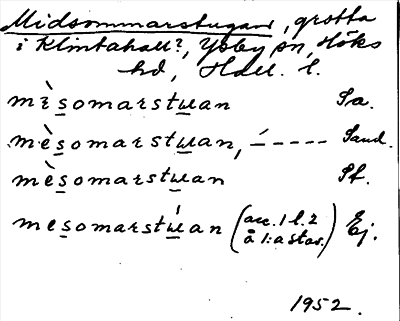 Midsommarstugan, grotta
i Klintahall?, Ysby sn, Höks
hd, Hall. l.
mèsomarstwan Sa.
mèsomarstwan, ---- Sand.
mèsomarstwan Sf.
mesomarstẃan (acc. 1 l. 2 å 1:a stav.) Ej.
1952.